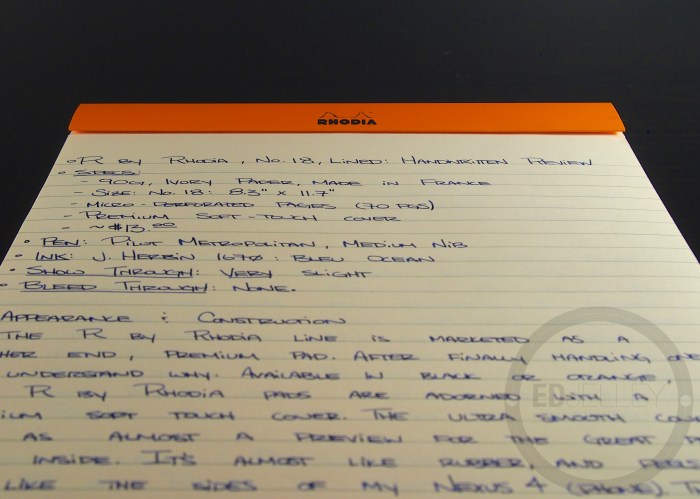 RHODIA
R by Rhodia, No. 18, Lined: Handwriten Review
Specs:
- 90g, Ivory Paper, Made in France
- Size: No. 18: 8.3" x 11.7"
- Micro-Perforated Pages (70 pgs)
- Premium Soft-Touch Cover
- ~$13.00
Pen: Pilot Metropolitan, Medium Nib
Ink: J. Herbin 1670: Bleu Ocean
Show Through: Very Slight
Bleed Through: None.
Appearance & Construction
The R by Rhodia line is marketed as a
her end, premium pad. After finally handling one
understand why. Available in black or orange,
R by Rhodia pads are adorned with a
ium soft touch cover. The ultra smooth
as almost a preview for the great
inside. It's almost like rubber, and feels
like the sides of my Nexus 4 (phone).